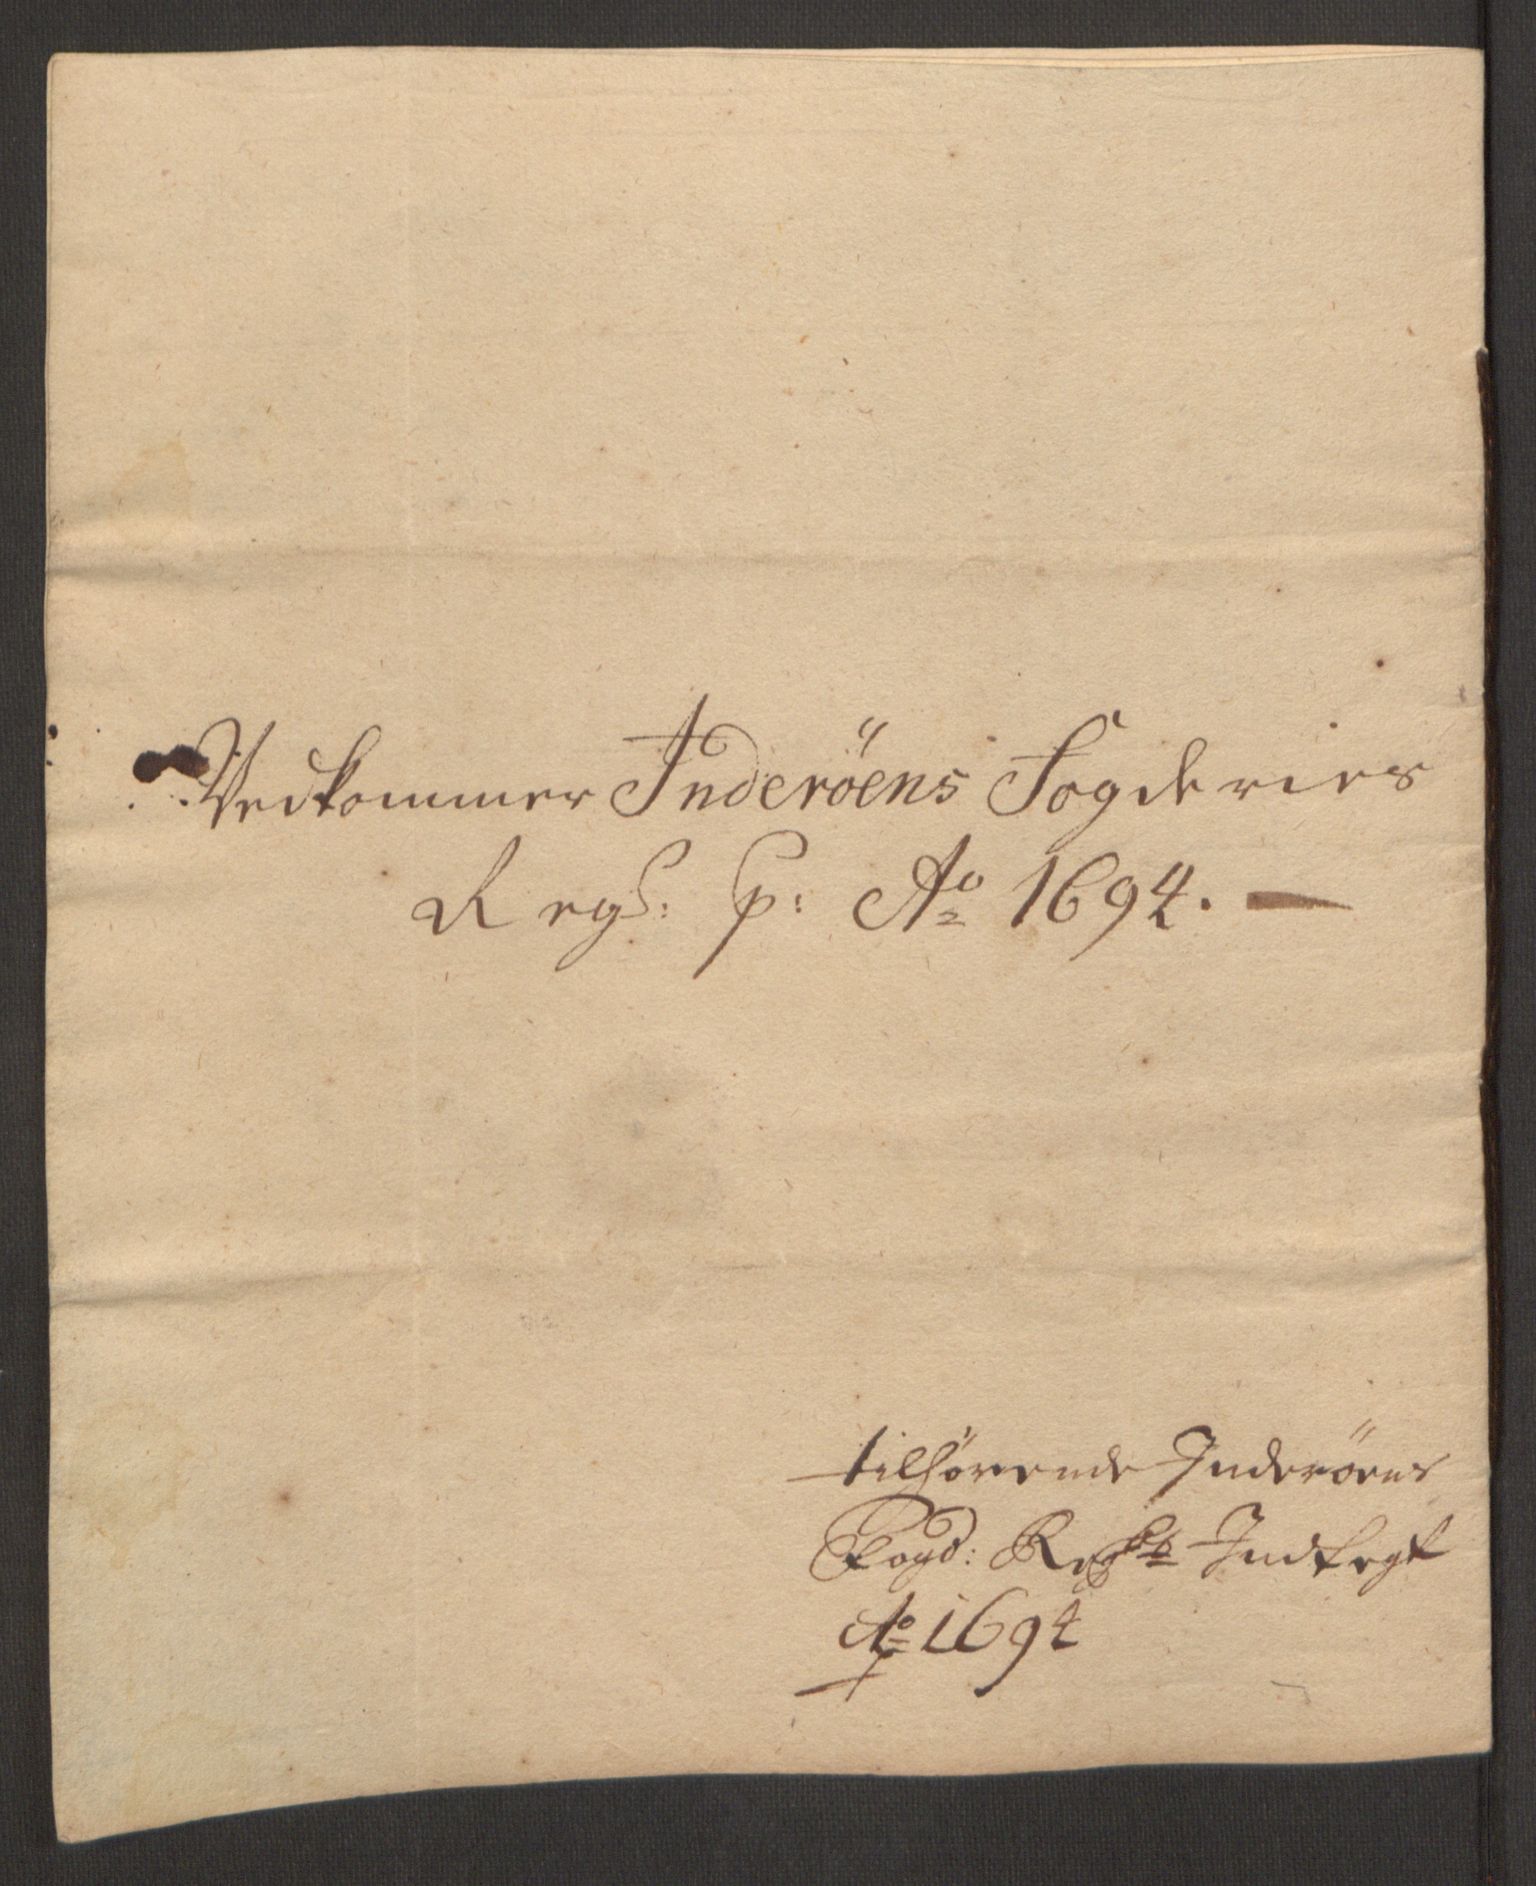 Vedkommer Inderöens Fogderies
Regs: p: Ao 1694. —
tilhörende Inderöens
Fogd: Regsb Indtegt
Ao 1694